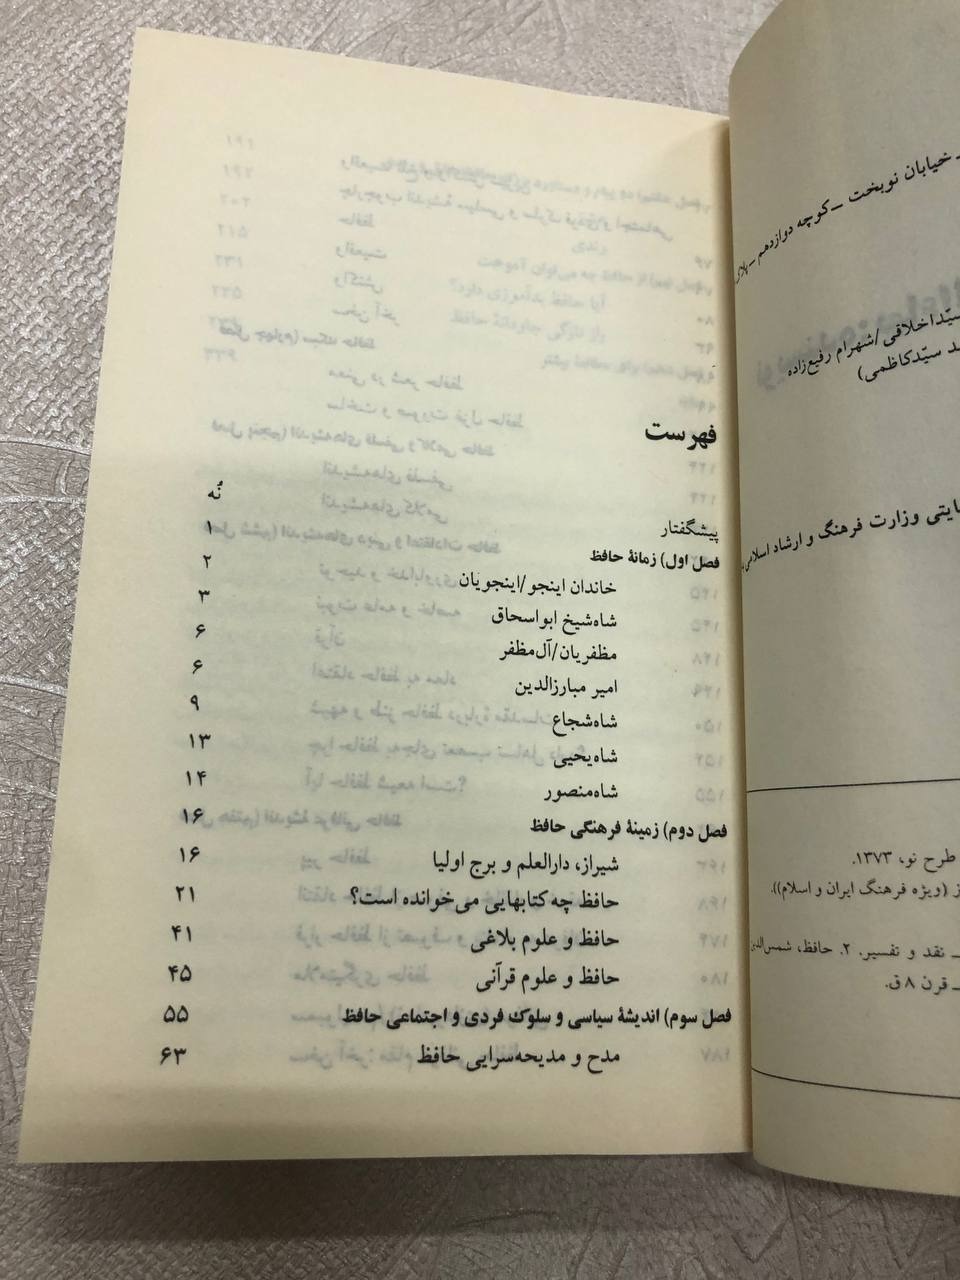 ـ خیابان نوبخت ـ کوچه دوازدهم ـ پلاک
سیّداخلاقی/شهرام رفیع‌زاده
سیّدکاظمی)
وزارت فرهنگ و ارشاد اسلامی
طرح نو، ۱۳۷۳.
(ویژه فرهنگ ایران و اسلام)).
ـ نقد و تفسیر. ۲. حافظ، شمس‌الدین
ـ قرن ۸ ق.
فهرست
پیشگفتار نُه
فصل اول) زمانهٔ حافظ ۱
خاندان اینجو/اینجویان ۲
شاه‌شیخ ابواسحاق ۳
مظفریان/آل‌مظفر ۶
امیر مبارزالدین ۶
شاه‌شجاع ۹
شاه‌یحیی ۱۳
شاه‌منصور ۱۴
فصل دوم) زمینهٔ فرهنگی حافظ ۱۶
شیراز، دارالعلم و برج اولیا ۱۶
حافظ چه کتابهایی می‌خوانده است؟ ۲۱
حافظ و علوم بلاغی ۴۱
حافظ و علوم قرآنی ۴۵
فصل سوم) اندیشهٔ سیاسی و سلوک فردی و اجتماعی حافظ ۵۵
مدح و مدیحه‌سرایی حافظ ۶۳